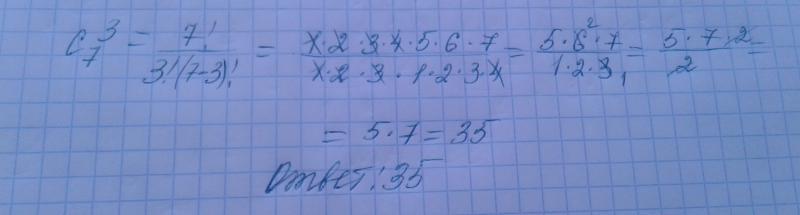 C₇³ = 7!/(3!(7-3)!) = (1·2·3·4·5·6·7)/(1·2·3·1·2·3·4) = (5·6²·7)/(1·2·3₁) = (5·7·2)/2 =
= 5·7 = 35
Ответ: 35